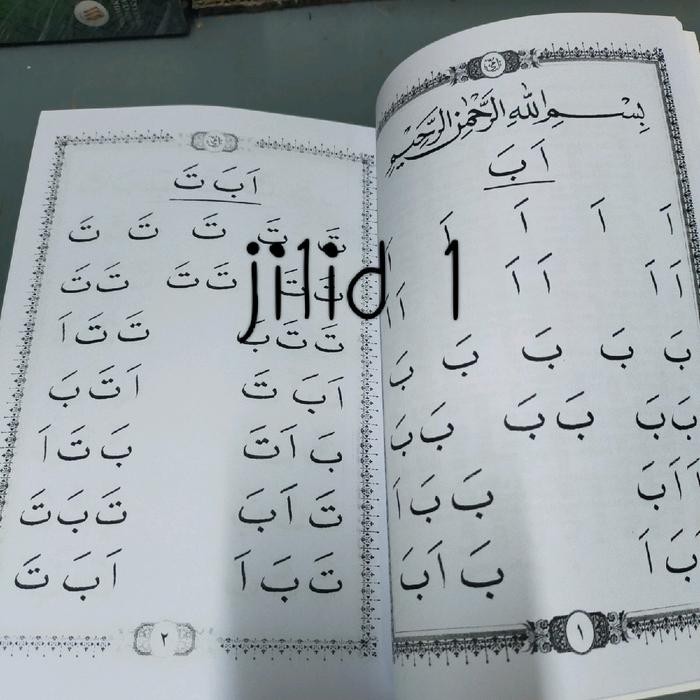 بِسْمِ اللهِ الرَّحْمٰنِ الرَّحِيْمِ
اَ بَ
اَ اَ اَ اَ اَ
اَ اَ اَ اَ اَ اَ
بَ بَ بَ بَ بَ
بَ بَ بَ بَ بَ بَ
اَ اَ بَ بَ بَ اَ
اَ بَ اَ بَ اَ بَ
١
اَ بَ تَ
تَ تَ تَ تَ تَ
تَ تَ تَ تَ تَ تَ
تَ تَ بَ تَ تَ اَ
اَ بَ تَ اَ تَ بَ
بَ اَ تَ بَ تَ اَ
تَ اَ بَ تَ بَ تَ
تَ بَ اَ اَ بَ تَ
٢
jilid 1